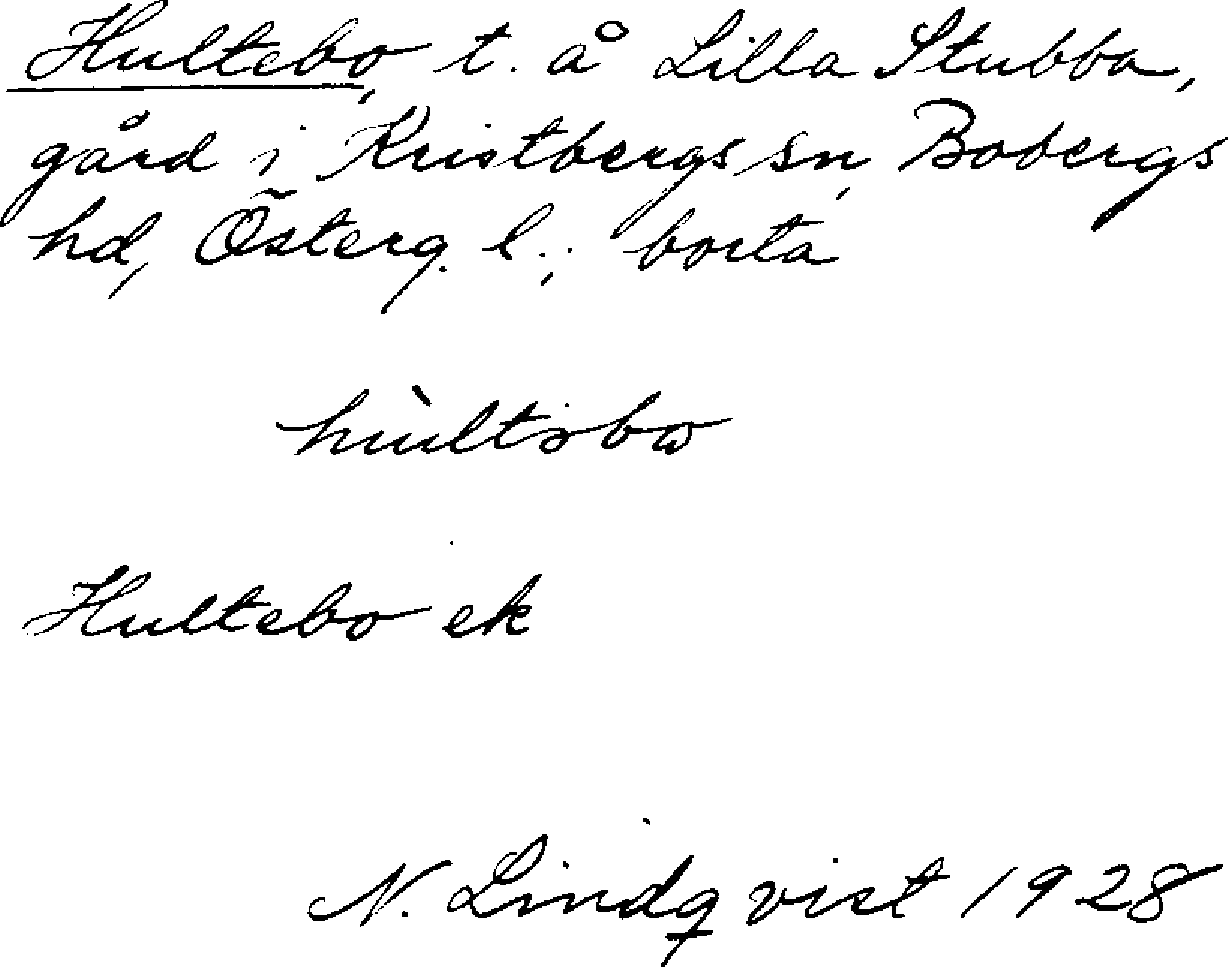 Hultebo, t. å Lilla Stubba,
gård i Kristbergs sn, Bobergs
hd, Österg. l.; borta
Hultebo ek
N. Lindqvist 1928